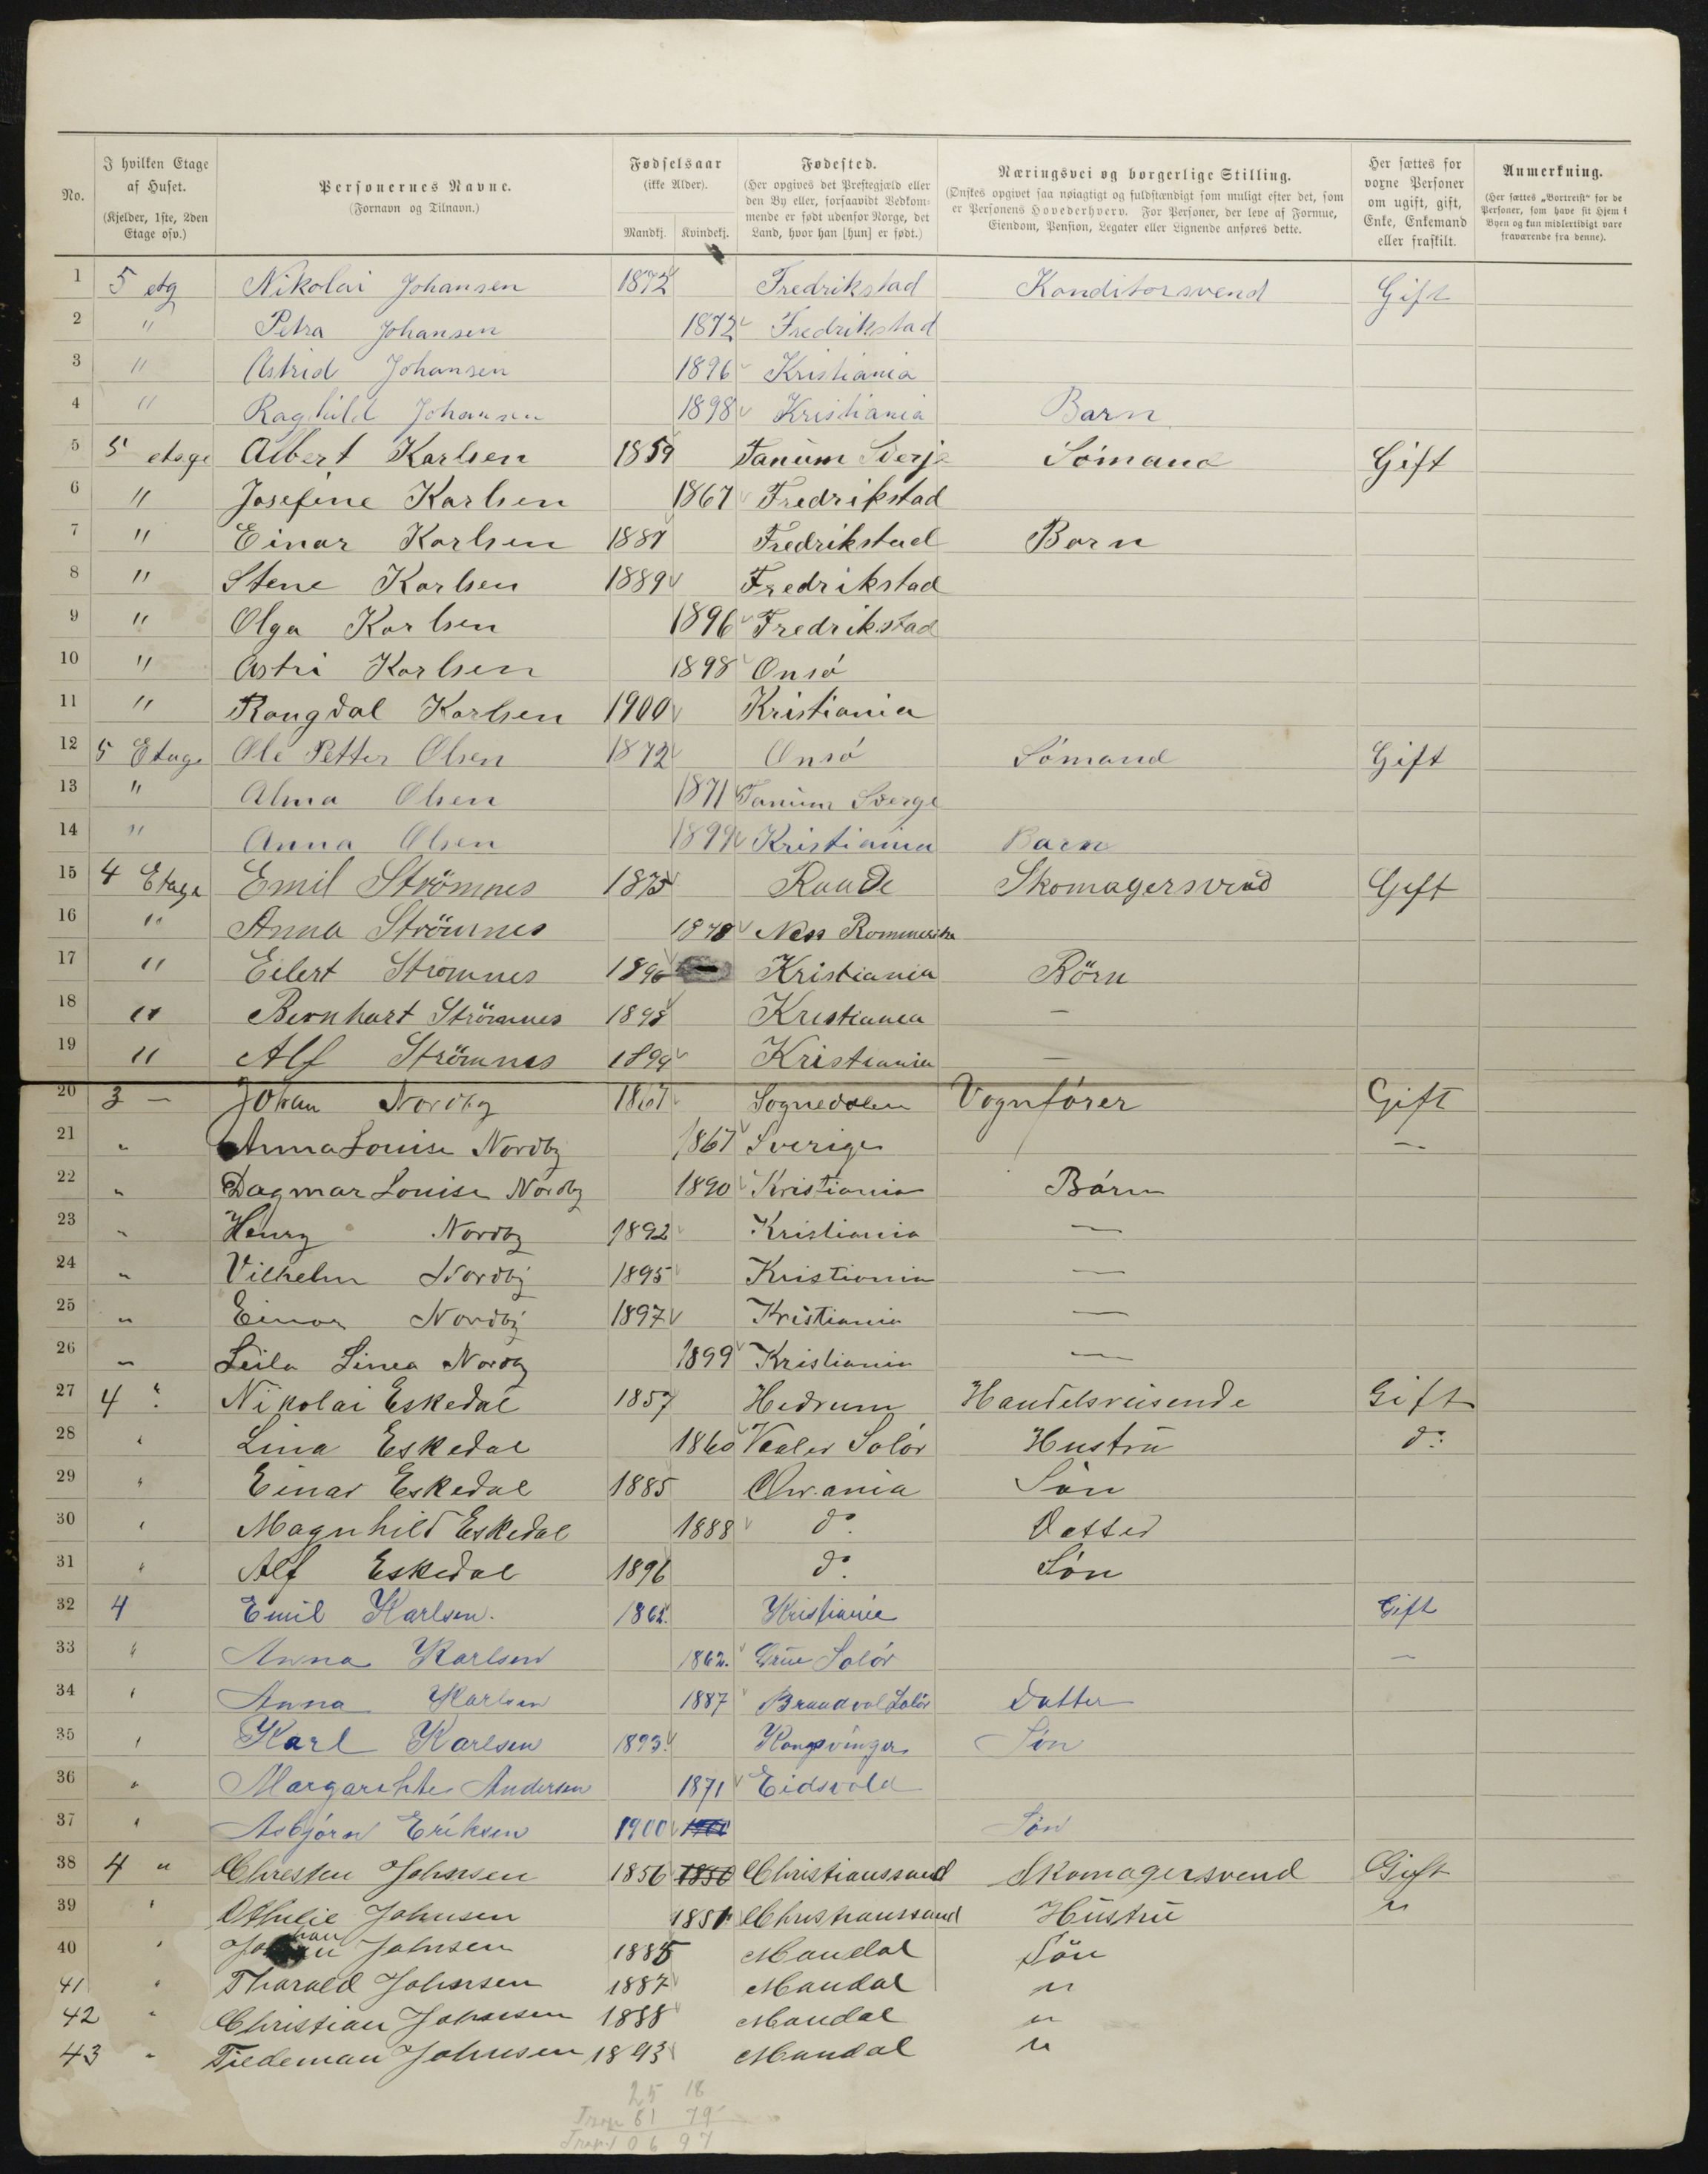 No. | I hvilken Etage af Huset. (Kjelder, 1ste, 2den Etage osv.) | Personernes Navne. (Fornavn og Tilnavn.) | Fødselsaar (ikke Alder). Mandkj. Kvindekj. | Fødested. (Her opgives det Prestegjæld eller den By eller, forsaavidt Vedkommende er født udenfor Norge, det Land, hvor han [hun] er født.) | Næringsvei og borgerlige Stilling. (Ønskes opgivet saa nøiagtigt og fuldstændigt som muligt efter det, som er Personens Hovederhverv. For Personer, der leve af Formue, Eiendom, Pension, Legater eller Lignende anføres dette. | Her sættes for voxne Personer om ugift, gift, Enke, Enkemand eller fraskilt. | Anmerkning. (Her sættes „Bortreist“ for de Personer, som have sit Hjem i Byen og kun midlertidigt vare fraværende fra denne).
1 5 etg Nikolai Johansen 1872 Fredrikstad Konditorsvend Gift
2 " Petra Johansen 1872 Fredrikstad
3 " Astrid Johansen 1896 Kristiania
4 " Raghild Johansen 1898 Kristiania Barn
5 5 etage Albert Karlsen 1859 Tanum Sverje Sömand Gift
6 " Josefine Karlsen 1867 Fredrikstad
7 " Einar Karlsen 1887 Fredrikstad Barn
8 " Stene Karlsen 1889 Fredrikstad
9 " Olga Karlsen 1896 Fredrikstad
10 " Astri Karlsen 1898 Onsö
11 " Rangdal Karlsen 1900 Kristiania
12 5 Etage Ole Petter Olsen 1872 Onsó Sómand Gift
13 " Alma Olsen 1871 Tanum Sverge
14 " Anna Olsen 1899 Kristiania Barn
15 4 Etage Emil Strömnes 1875 Raade Skomagersvend Gift
16 " Anna Strömnes 1878 Ness Rommerike
17 " Eilert Strömnes 1896 Kristiania Börn
18 " Bernhart Strömnes 1898 Kristiania —
19 " Alf Strömnes 1899 Kristiania —
20 3 — Johan Nordby 1867 Sognedalen Vognfórer Gift
21 " Anna Louise Nordby 1867 Sverige —
22 " Dagmar Louise Nordby 1890 Kristiania Bórn
23 " Henry Nordby 1892 Kristiania —
24 " Vilhelm Nordby 1895 Kristiania —
25 " Einar Nordby 1897 Kristiania —
26 " Leila Linea Nordby 1899 Kristiania —
27 4 " Nikolai Eskedal 1857 Hedrum Handelsreisende Gift
28 " Lina Eskedal 1860 Vaaler Solór Hustru do
29 " Einar Eskedal 1885 Chr.ania Són
30 " Magnhild Eskedal 1888 do Datter
31 " Alf Eskedal 1896 do Són
32 4 Emil Karlsen. 1862. Kristiania Gift
33 " Anna Karlsen 1862. Grue Solór —
34 " Anna Karlsen 1887 Brandval Solör Datter
35 " Karl Karlsen 1893 Kongsvinger Són
36 " Margarethe Andersen 1871 Eidsvold
37 " Asbjórn Eriksen 1900 1900 Són
38 4 " Christen Johnsen 1856 1850 Christianssand Skomagersvend Gift
39 " Othilie Johnsen 1851 Christianssand Hustru "
40 " Johan Johnsen 1885 Mandal Sön
41 " Tharald Johnsen 1887 Mandal "
42 " Christian Johnsen 1888 Mandal "
43 " Tiedeman Johnsen 1893 Mandal "
25 18
81 79
106 97